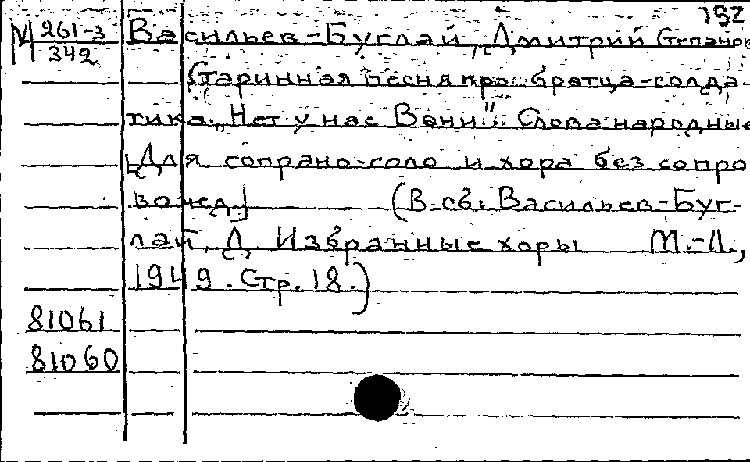 792
М 261-3 Васильев-Буглай, Дмитрий Степанов
342
Старинная песня про братца-солда-
тика „Нет у нас Вани". Слова народные
[Для сопрано-соло и хора без сопро
вожд.] (В сб.: Васильев-Буг-
лай, Д. Избранные хоры М.-Л.,
1949. Стр. 18.)
81061
81060